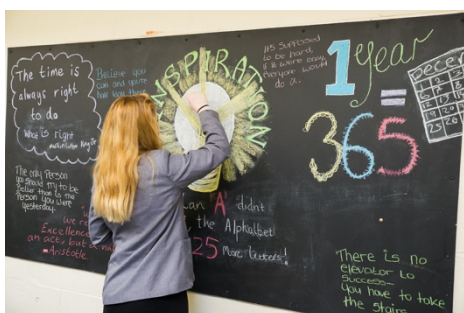 The time is
always right
to do
what is right
Martin Luther King Jr
Believe you
can and you're
half way there
INSPIRATION
It's Supposed
to be hard
if it were easy
Everyone would
do it.
1 year
=
365
Decem
The only Person
you should try to be
better than is the
Person you were
yesterday.
we re
Excellence
an act, but a
-Aristotle
an 'A' didnt
the Alphabet
25 More Letters!
There is no
elevator to
success-
you have to take
the stairs